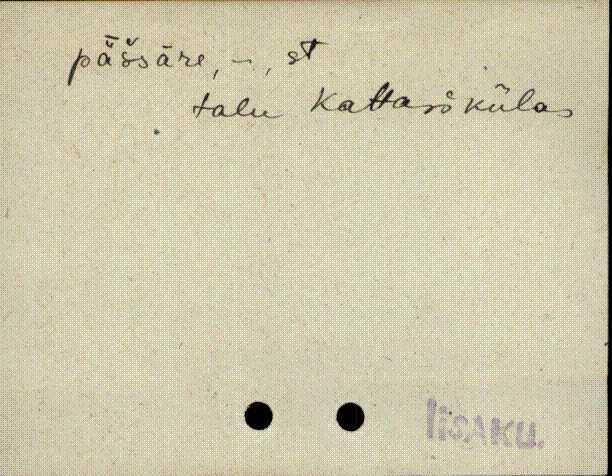 pä̆šsäre, -, st
talu Kattasõkülas
Iisaku.